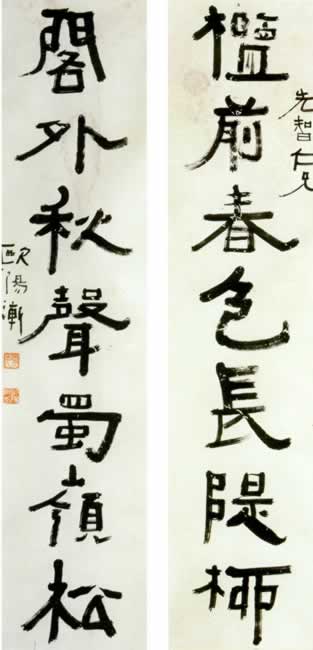 先智仁兄
檻前春色長隄柳
閣外秋聲蜀嶺松
欧陽漸